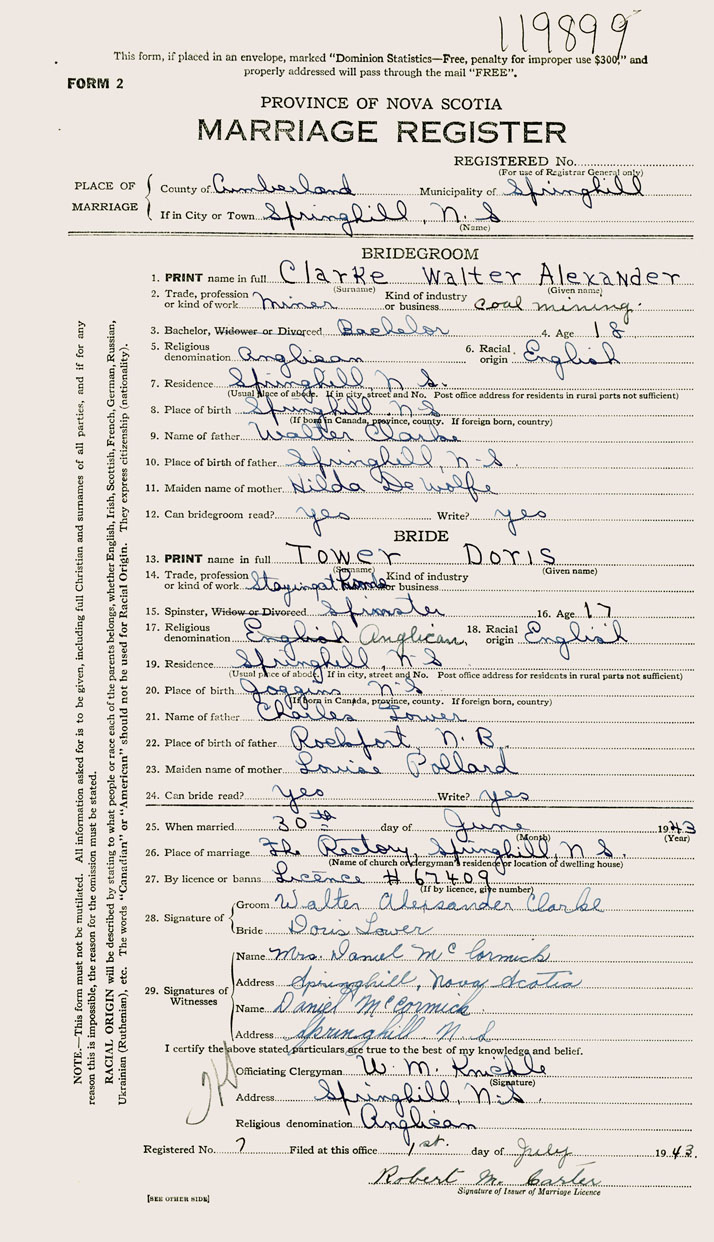 119899
This form, if placed in an envelope, marked "Dominion Statistics—Free, penalty for improper use $300," and
properly addressed will pass through the mail "FREE".
FORM 2
PROVINCE OF NOVA SCOTIA
MARRIAGE REGISTER
REGISTERED No.
(For use of Registrar General only)
PLACE OF MARRIAGE
County of Cumberland Municipality of Springhill
If in City or Town Springhill, N.S
(Name)
BRIDEGROOM
1. PRINT name in full Clarke Walter Alexander
(Surname) (Given name)
2. Trade, profession or kind of work Miner Kind of industry or business Coal mining.
3. Bachelor, Widower or Divorced Bachelor 4. Age 18
5. Religious denomination Anglican 6. Racial origin English
7. Residence Springhill, N S.
(Usual place of abode. If in city, street and No. Post office address for residents in rural parts not sufficient)
8. Place of birth Springhill N S
(If born in Canada, province, county. If foreign born, country)
9. Name of father Walter Clarke
10. Place of birth of father Springhill, N-S.
11. Maiden name of mother Hilda De Wolfe
12. Can bridegroom read? yes Write? yes
BRIDE
13. PRINT name in full Tower Doris
(Surname) (Given name)
14. Trade, profession or kind of work Staying at home Kind of industry or business
15. Spinster, Widow or Divorced Spinster 16. Age 17
17. Religious denomination English Anglican, 18. Racial origin English
19. Residence Springhill, N S
(Usual place of abode. If in city, street and No. Post office address for residents in rural parts not sufficient)
20. Place of birth Joggins N S
(If born in Canada, province, county. If foreign born, country)
21. Name of father Charles Tower
22. Place of birth of father Rockport, N. B.
23. Maiden name of mother Louise Pollard
24. Can bride read? yes Write? yes
25. When married 30th day of June 1943
(Month) (Year)
26. Place of marriage The Rectory, Springhill, N S.
(Name of church or clergyman's residence or location of dwelling house)
27. By licence or banns Licence # 67409
(If by licence, give number)
28. Signature of
Groom Walter Alexsander Clarke
Bride Doris Tower
29. Signatures of Witnesses
Name Mrs. Daniel McCormick
Address Springhill, Nova Scotia
Name Daniel McCormick.
Address Springhill N. S
I certify the above stated particulars are true to the best of my knowledge and belief.
Officiating Clergyman W. M. Knickle
(Signature)
Address Springhill, N.S.
Religious denomination Anglican
Registered No. 7 Filed at this office 1st. day of July 1943.
Robert M. Carter
Signature of Issuer of Marriage Licence
[SEE OTHER SIDE]
NOTE.—This form must not be mutilated. All information asked for is to be given, including full Christian and surnames of all parties, and if for any
reason this is impossible, the reason for the omission must be stated.
RACIAL ORIGIN will be described by stating to what people or race each of the parents belongs, whether English, Irish, Scottish, French, German, Russian,
Ukrainian (Ruthenian), etc. The words "Canadian" or "American" should not be used for Racial Origin. They express citizenship (nationality).